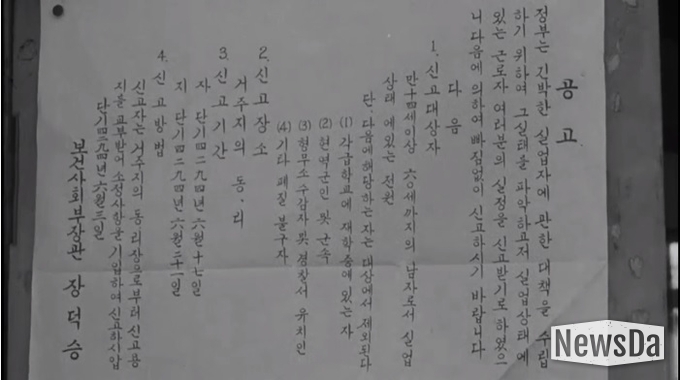 공고
정부는 긴박한 실업자에 관한 대책을 수립
하기 위하여 그 실태를 파악하고저 실업상태에
있는 근로자 여러분의 실정을 신고받기로 하였으
니 다음에 의하여 빠짐없이 신고하시기 바랍니다
다음
1. 신고대상자
만十四세이상 六〇세까지의 남자로서 실업
상태에 있는 전원
단. 다음에 해당하는 자는 대상에서 제외된다
(1) 각급학교에 재학중에 있는 자
(2) 현역군인 및 군속
(3) 형무소 수감자 및 경찰서 유치인
(4) 기타 폐질 불구자
2. 신고장소
거주지의 동.리
3. 신고기간
자 단기四二九四년 六월 十七일
지 단기四二九四년 六월 二十一일
4. 신고방법
신고자는 거주지의 동리장으로부터 신고용
지를 교부받어 소정사항을 기입하여 신고하시압
단기四二九四년 六월 三일
보건사회부장관 장덕승
NewsDa